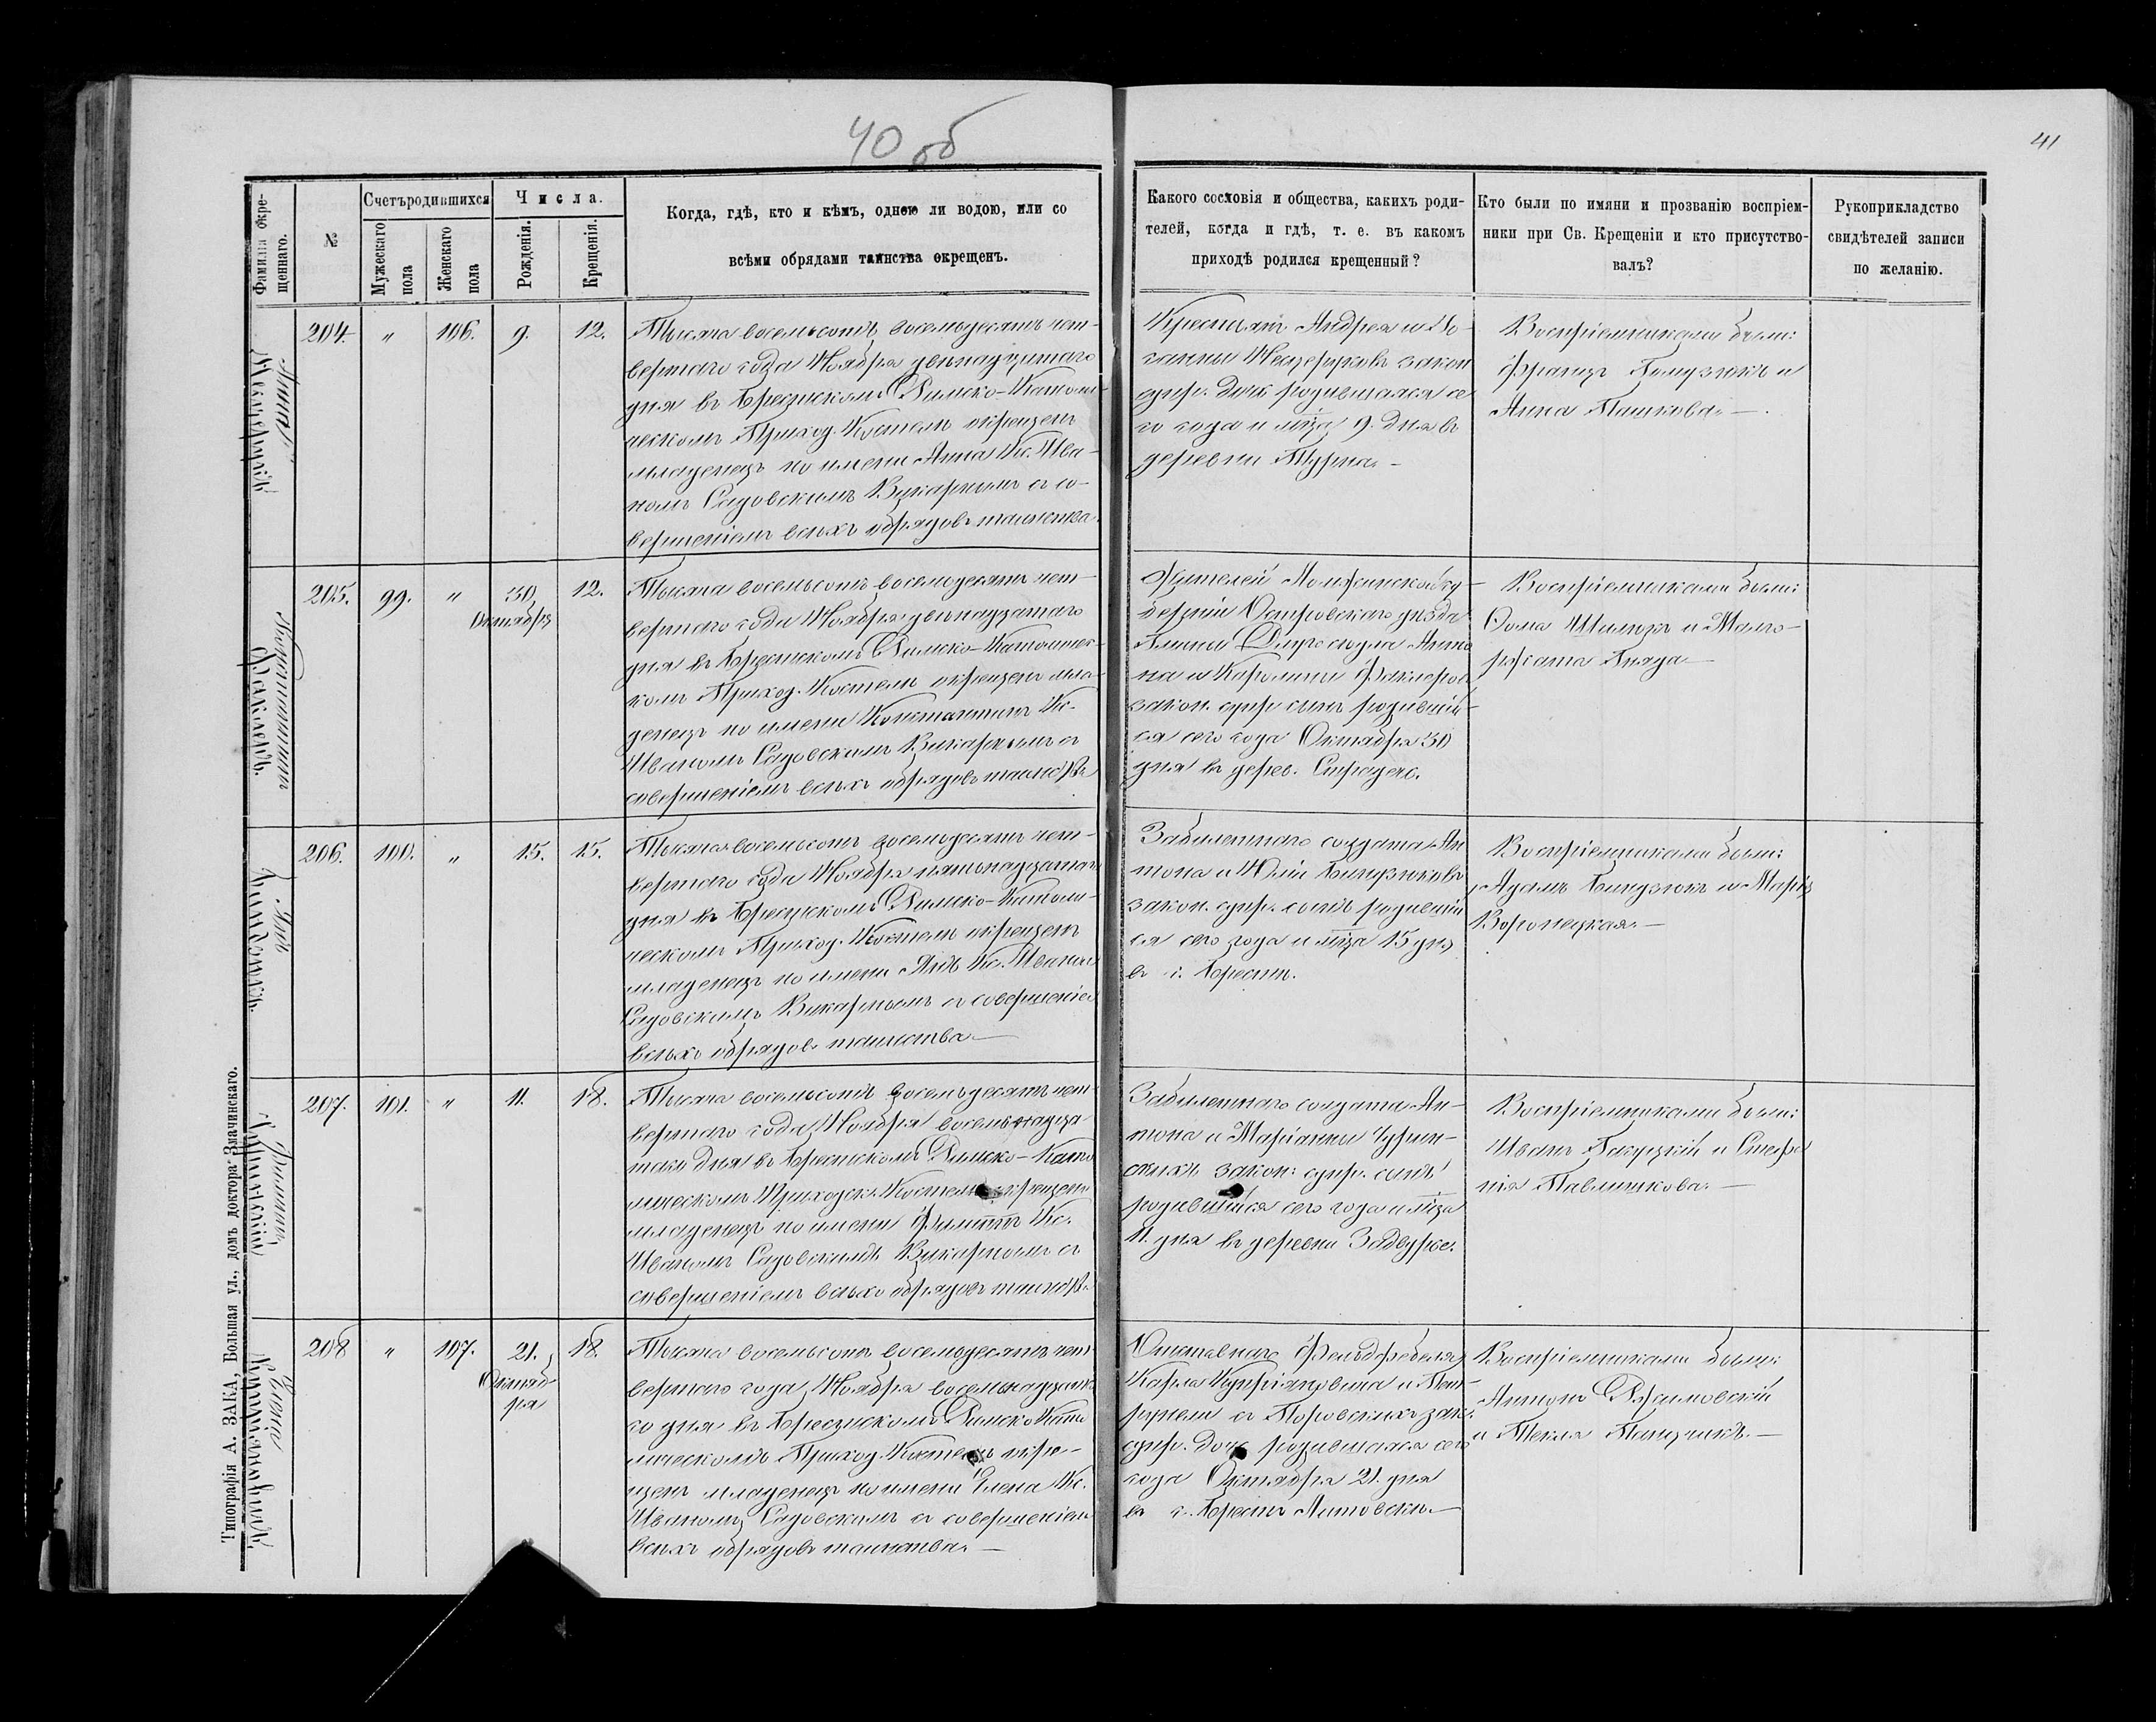 40 об
41
Фамилія окре-
щеннаго.
№
Счетъ родившихся
Мужескаго
пола
Женскаго
пола
Числа.
Рожденія.
Крещенія.
Когда, гдѣ, кто и кѣмъ, одною ли водою, или со
всѣми обрядами таинства окрещенъ.
Какого сословія и общества, какихъ роди-
телей, когда и гдѣ, т. е. въ какомъ
приходѣ родился крещенный?
Кто были по имяни и прозванію воспріем-
ники при Св. Крещеніи и кто присутство-
валъ?
Рукоприкладство
свидѣтелей записи
по желанію.
Анна
204.
"
106.
9.
12.
Тысяча восемьсотъ восемьдесятъ чет-
вертаго года Ноября двенадцатаго
дня въ Брестскомъ Римско-Католи-
ческомъ Приход. Костелѣ окрещенъ
младенецъ по имени Анна Кс. Ива-
номъ Садовскимъ Викарнымъ съ со-
вершеніемъ всѣхъ обрядовъ таинства.
Крестьянъ Андрея и Іо-
анны закон
супр. дочь родившаяся се
го года и мѣсяца 9. дня въ
деревни Турна.-
Воспріемниками были:
Францъ и
Анна Пашкова.-
Константинъ
205.
99.
"
30
Октября
12.
Тысяча восемьсотъ восемьдесятъ чет-
вертаго года Ноября двенадцатаго
дня въ Брестскомъ Римско-Католичес-
комъ Приход. Костелѣ окрещенъ мла-
денецъ по имени Константинъ Кс.
Иваномъ Садовскимъ Викарнымъ съ
совершеніемъ всѣхъ обрядовъ таинств.
Жителей Ломжинской гу-
берніи Островского уѣзда
Гмины Анто
на и Каролины
закон. супр. сынъ родившій-
ся сего года Октября 30
дня въ дерев. Страдечь.
Воспріемниками были:
Ѳома и Малго-
ржата
Янъ
206.
100.
"
15.
15.
Тысяча восемьсотъ восемьдесятъ чет-
вертаго года Ноября пятьнадцатаго
дня въ Брестскомъ Римско-Католи-
ческомъ Приход. Костелѣ окрещенъ
младенецъ по имени Янъ Кс. Иваномъ
Садовскимъ Викарнымъ съ совершеніем
всѣхъ обрядовъ таинства.-
Забилетнаго солдата Ан
тона и Юліи
закон. супр. сынъ родившій
ся сего года и мѣсяца 15 дня
въ г. Брестѣ.
Воспріемниками были:
Адамъ и Марія
Воронецкая.-
Филиппъ
207.
101.
"
11.
18.
Тысяча восемьсотъ восемьдесятъ чет-
вертаго года Ноября восемьнадца
таго дня въ Брестскомъ Римско-Като
лическомъ Приходск. Костелѣ окрещенъ
младенецъ по имени Филиппъ Кс.
Иваномъ Садовскимъ Викарнымъ съ
совершеніемъ всѣхъ обрядовъ таинств.
Забилетнаго солдата Ан-
тона и Маріанны
закон: супр. сынъ
родившійся сего года и мѣсяца
11. дня въ деревни Задворье.
Воспріемниками были:
Иванъ и Стефа
нія Павлишкова.-
Елена
208
"
107.
21.
Октяб-
ря
18.
Тысяча восемьсотъ восемьдесятъ чет-
вертаго года Ноября восемьнадцата
го дня въ Брестскомъ Римско Като
лическомъ Приход. Костелѣ окре-
щенъ младенецъ по имени Елена Кс.
Иваномъ Садовскимъ съ совершеніемъ
всѣхъ обрядовъ таинства.-
Отставнаго Фельдфебеля
Карла и Пет-
рунели съ зак.
супр. дочь родившаяся сего
года Октября 21. дня
въ г. Брестъ Литовскъ.-
Воспріемниками были:
Антонъ
и Текля
Типографія А. ЗАКА, Большая ул., домъ доктора Змачинскаго.